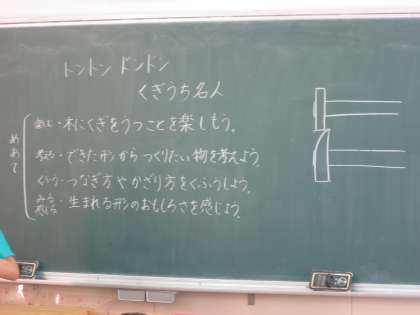 トントン ドンドン
くぎうち名人
めあて
・木にくぎをうつことを楽しもう。
・できた形からつくりたい物を考えよう。
くふう・つなぎ方やかざり方をくふうしよう。
・生まれる形のおもしろさを感じよう。